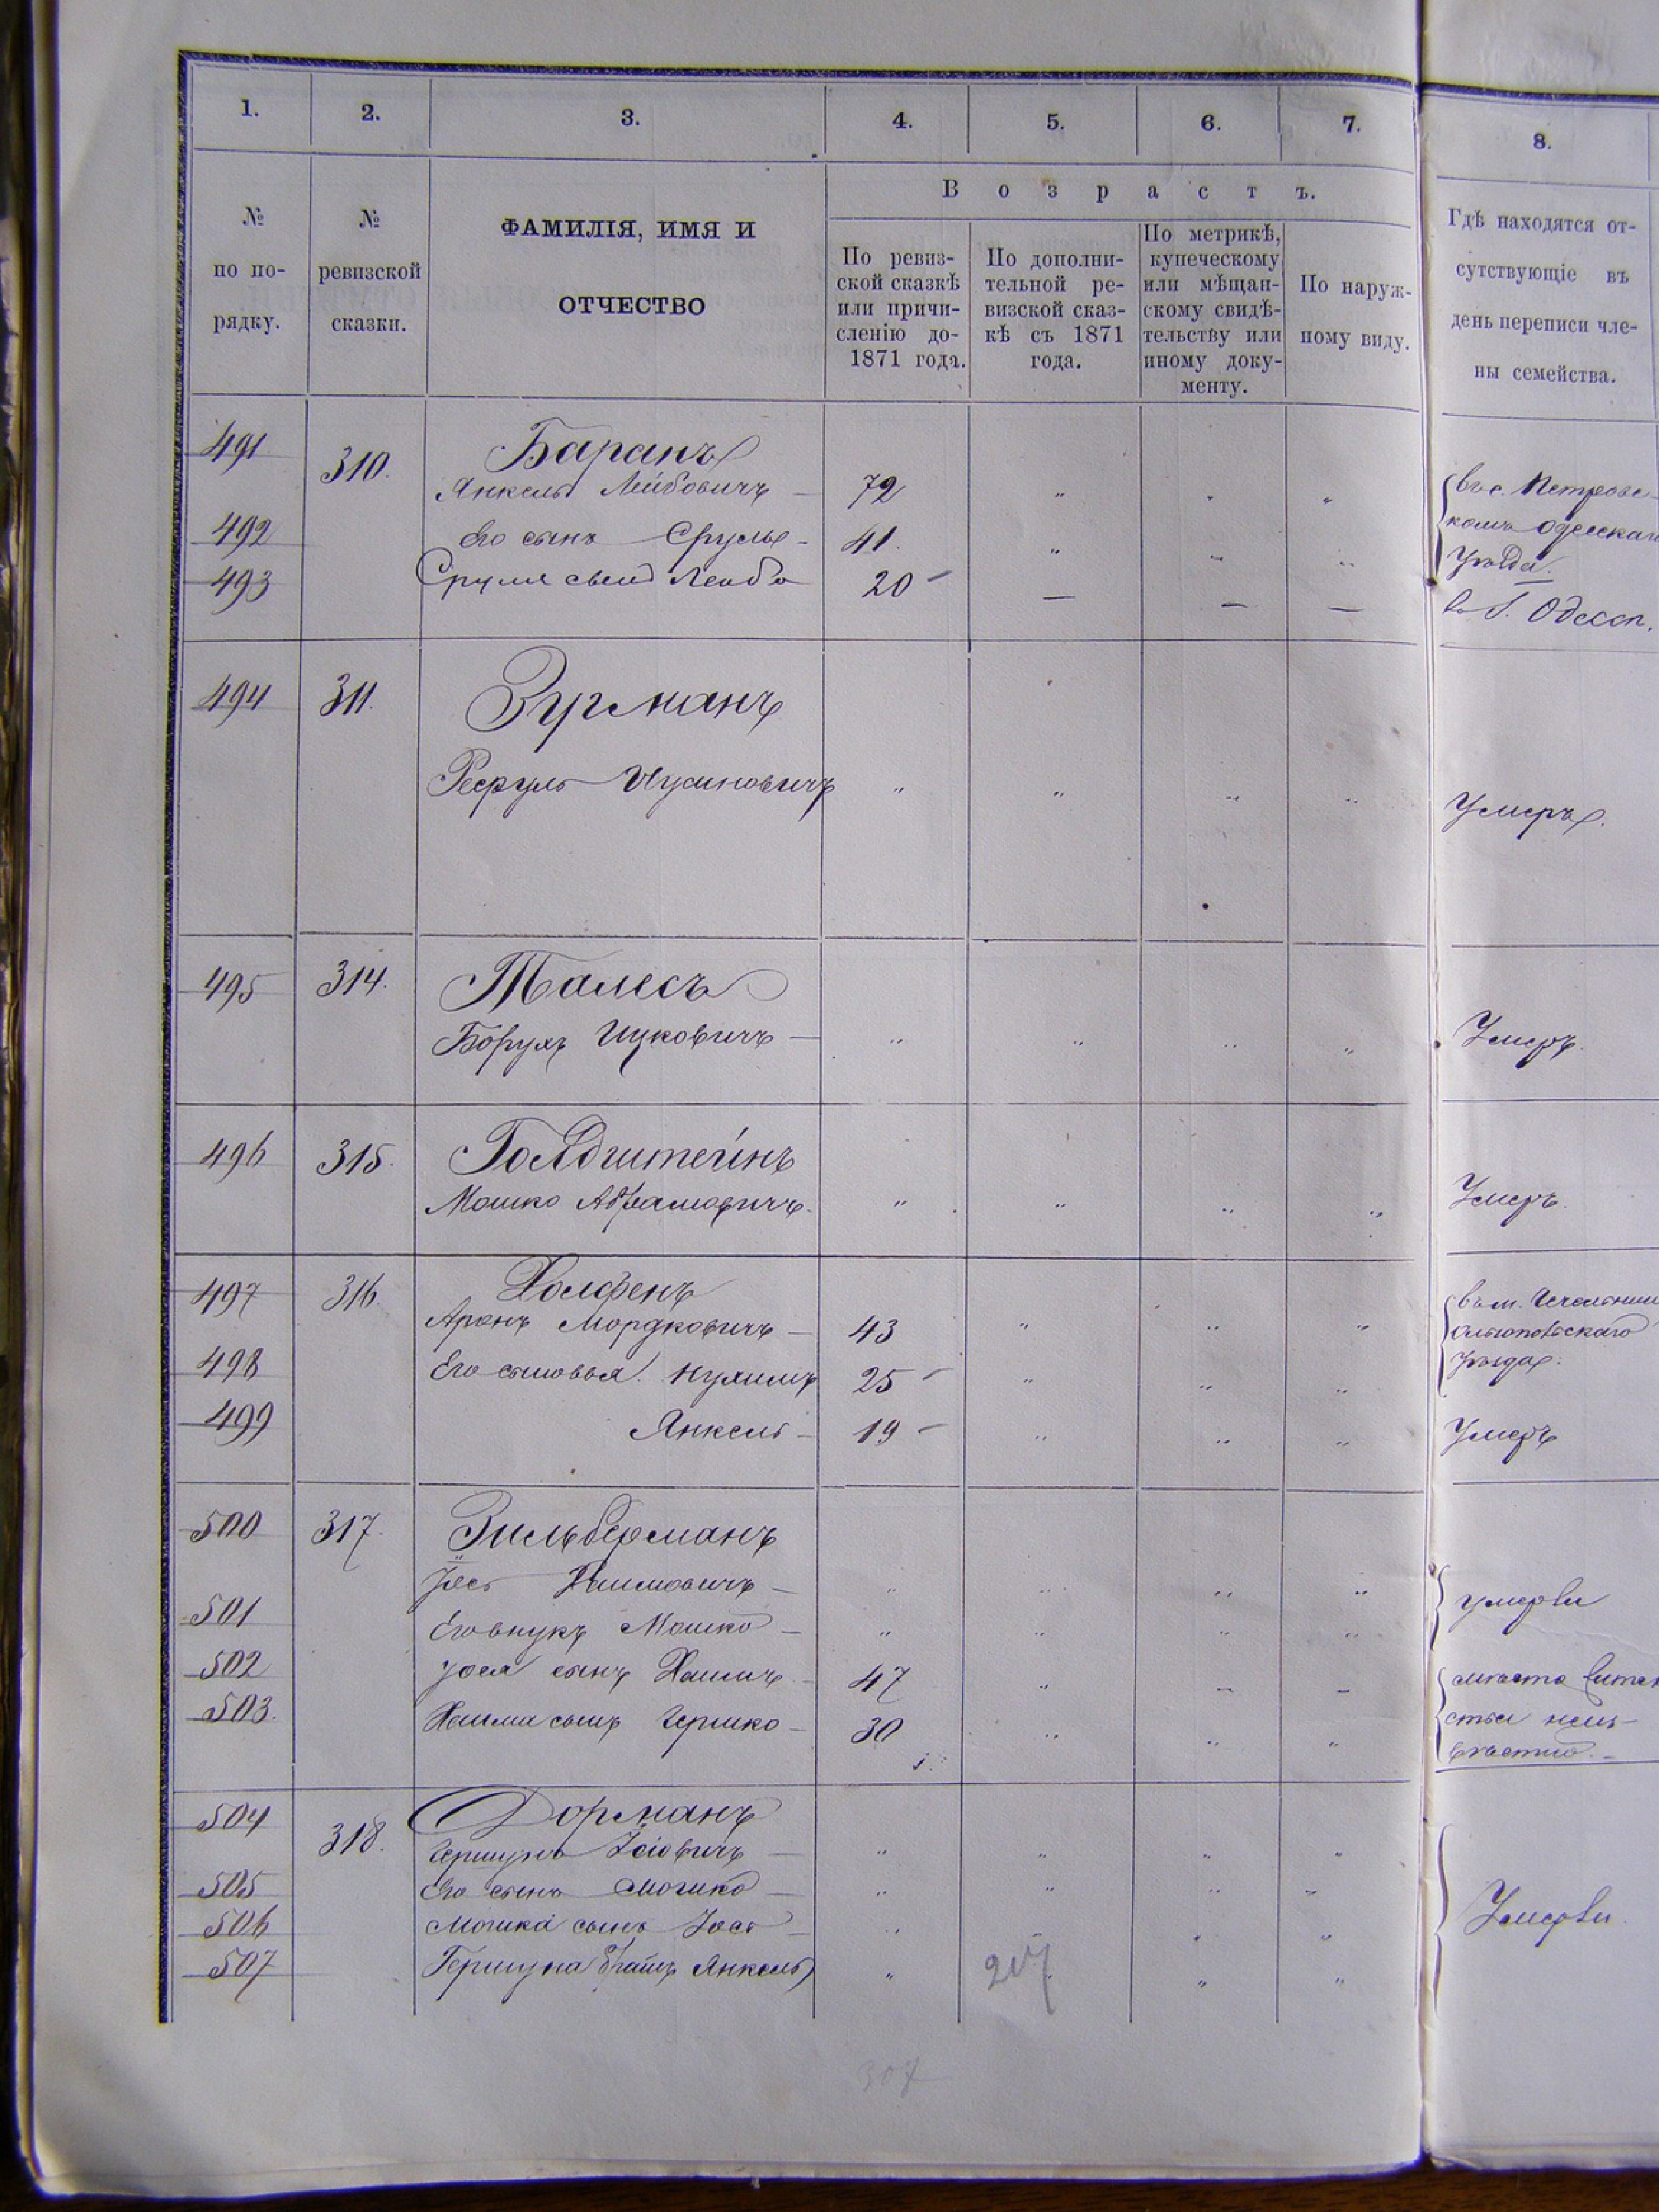 1. 2. 3. 4. 5. 6. 7. 8.
В о з р а с т ъ.
№ по по-рядку.
№ ревизской сказки.
ФАМИЛІЯ, ИМЯ И
ОТЧЕСТВО
По ревиз-
ской сказкѣ
или причи-
сленію до-
1871 года.
По дополни-
тельной ре-
визской сказ-
кѣ съ 1871
года.
По метрикѣ,
купеческому
или мѣщан-
скому свидѣ-
тельству или
иному доку-
менту.
По наруж-
ному виду.
Гдѣ находятся от-
сутствующіе въ
день переписи чле-
ны семейства.
491 310. Баранъ
Янкель Лейбовичъ — 72 " " " въ с. Петровс-
492 Его сынъ Сруль - 41. " — " комъ Одесскаго
уѣзда.
493 Сруля сынъ Лейба 20 — — — въ г. Одессѣ.
494 311. Зурманъ
" " " " Умеръ.
495 314. Талесъ
Борухъ Ицковичъ — " " " " Умеръ.
496 315. Голдштейнъ
Мошко Абрамовичъ. " " " " Умеръ.
497 316. 
Аронъ Мордковичъ — 43 " " " въ м.
уѣзда.
498 Его сыновья: Нухимъ 25 " " "
499 Янкель - 19 " " " Умеръ
500 317. Зильберманъ
Іось Хаимовичъ — " " " " умерли
501 Его внукъ Мошко — " " " "
502 Іося сынъ Хаимъ - 47 " — —
503. Хаима сынъ Гершко - 30 " " "
504 318. Дорманъ
Гершунъ Іосіовичъ — " " " "
505 Его сынъ Мошко — " " " " Умерли
506 Мошка сынъ Іось — " " " "
507 Гершуна братъ Янкель " " " "
207
307